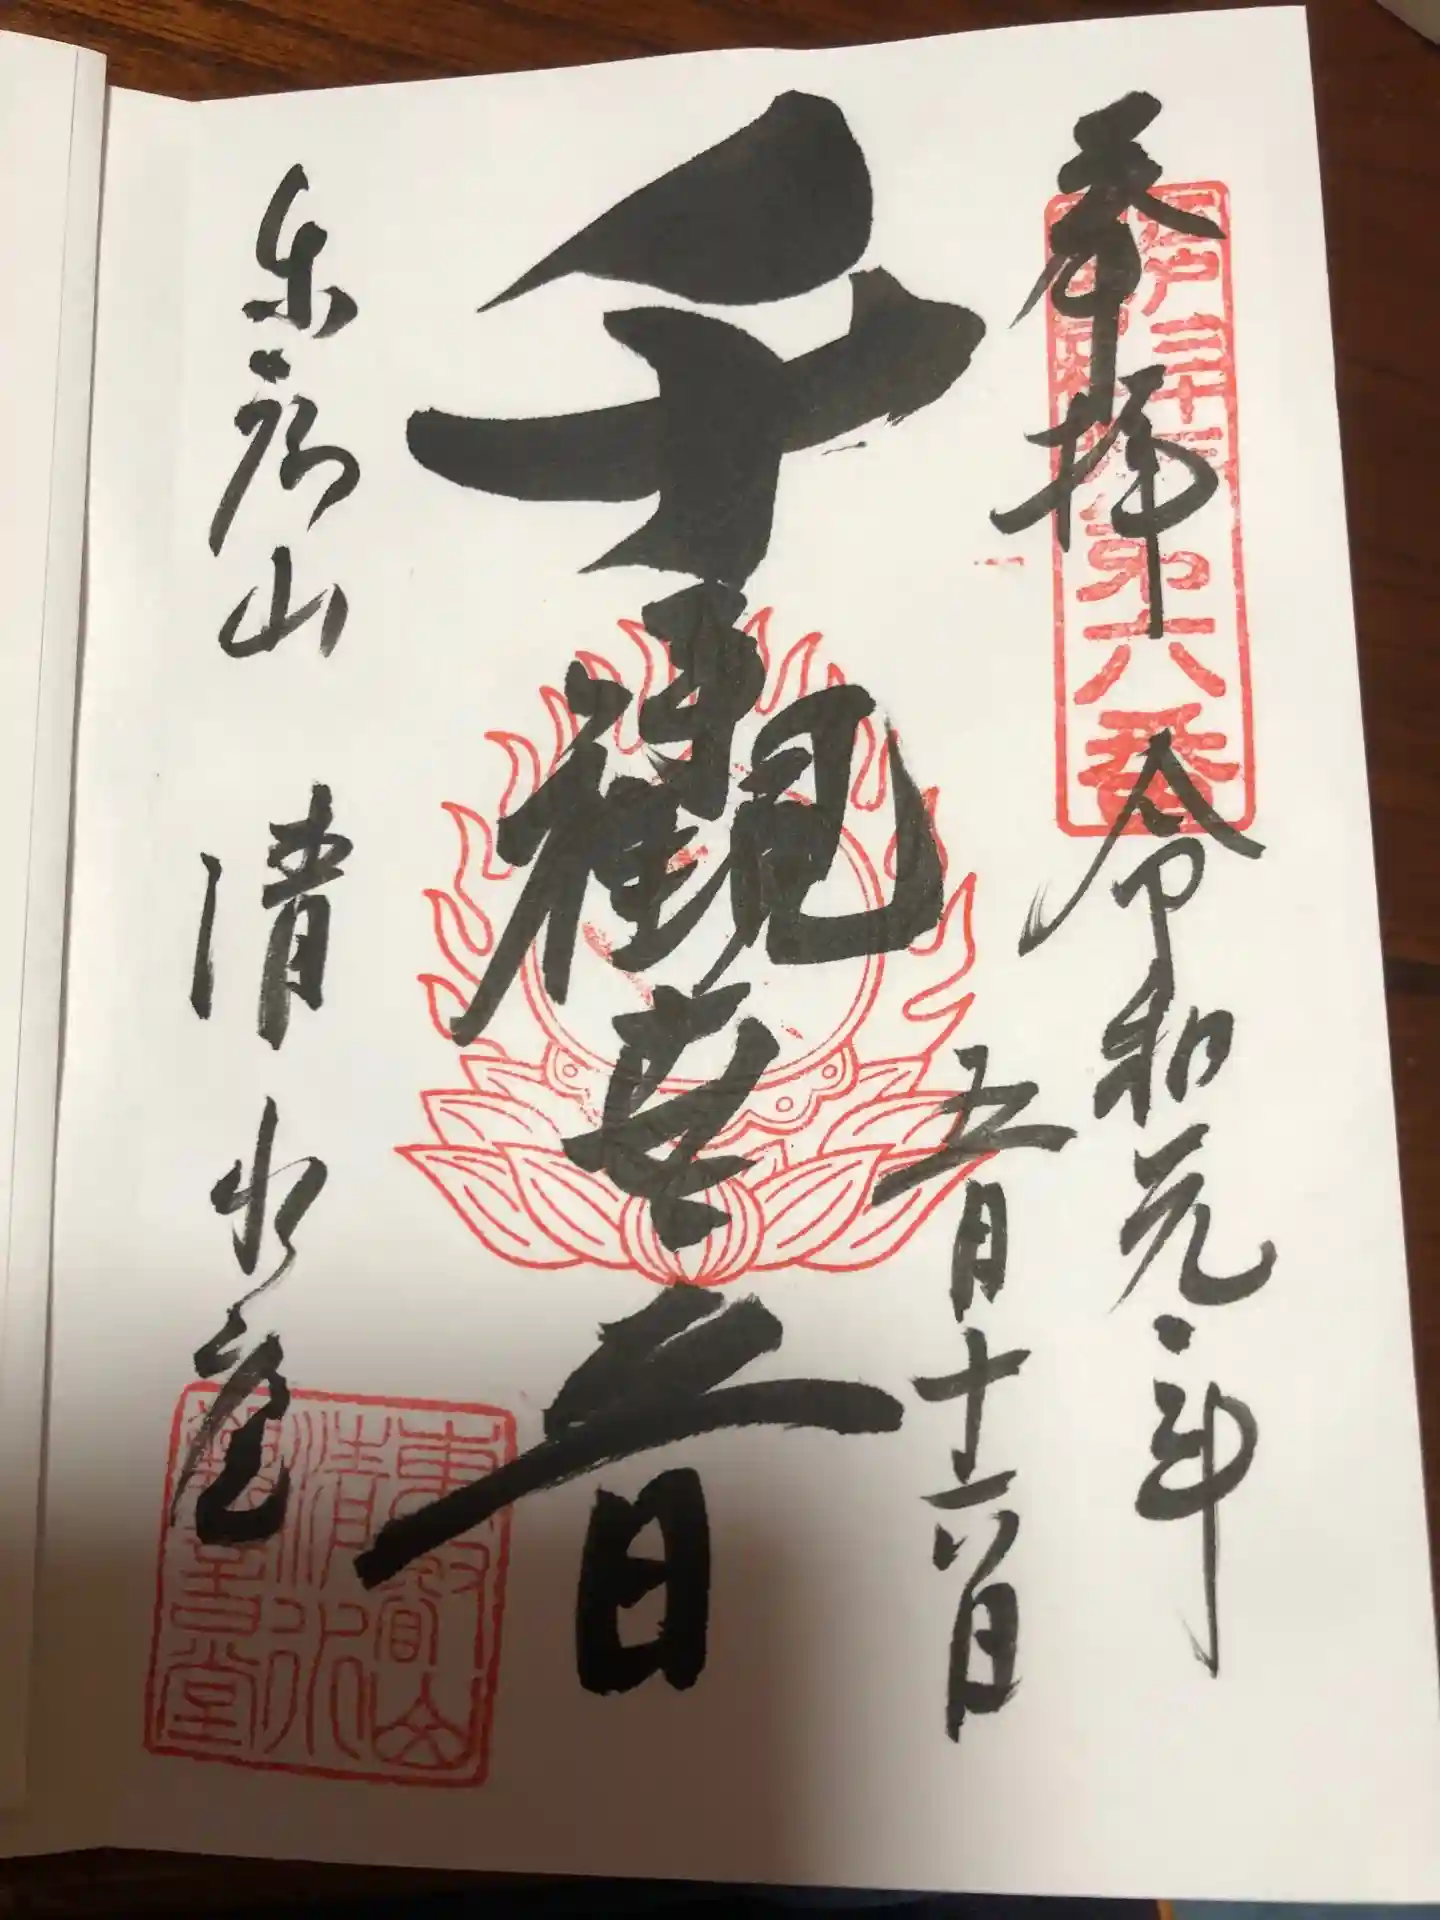 奉拝
江戸三十三
第六番
令和元年
五月十六日
千手観世音
東叡山 清水堂
東叡山
清水
観音堂